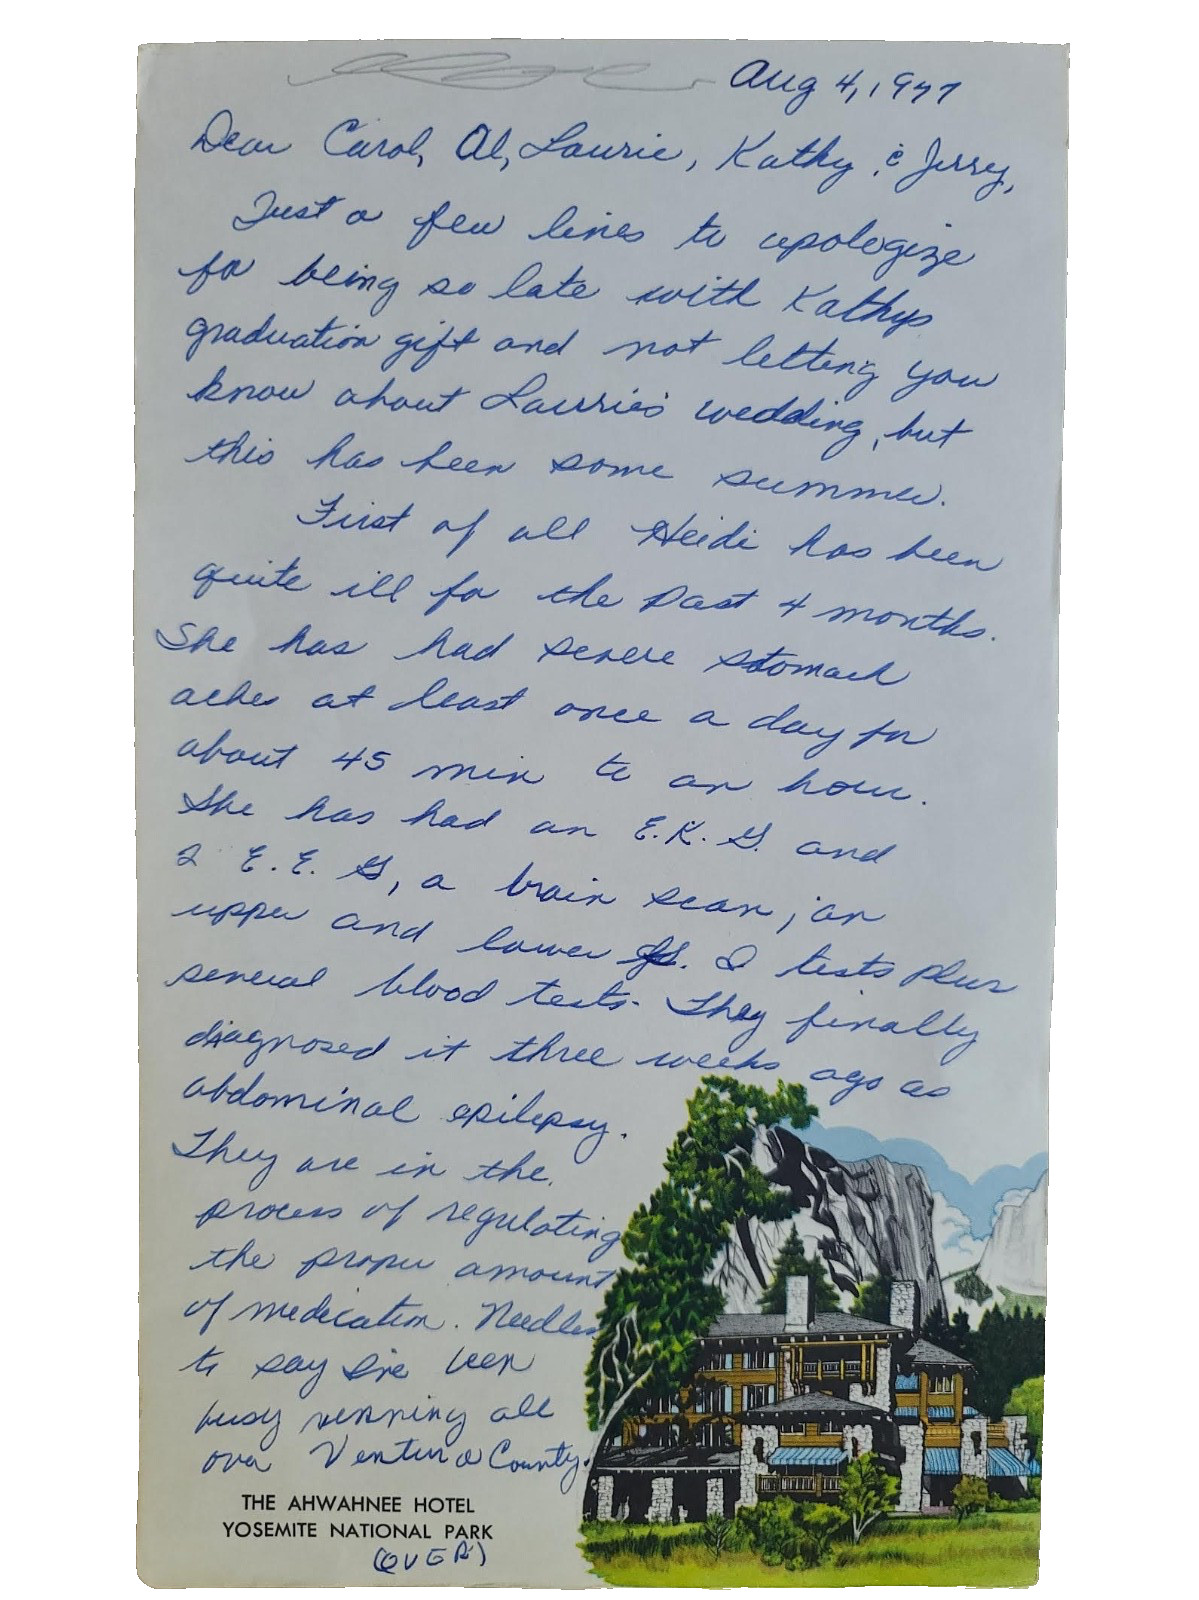 Aug 4, 1977
Dear Carol, Al, Laurie, Kathy & Jerry,
Just a few lines to apologize
for being so late with Kathys
graduation gift and not letting you
know about Laurie's wedding, but
this has been some summer.
First of all Heidi has been
quite ill for the past 4 months.
She has had severe stomach
aches at least once a day for
about 45 min to an hour.
She has had an E.K.G. and
2 E.E.G, a brain scan, an
upper and lower G. I tests plus
several blood tests. They finally
diagnosed it three weeks ago as
abdominal epilepsy.
They are in the
process of regulating
the proper amount
of medication. Needless
to say I've been
busy running all
over Ventura County.
THE AHWAHNEE HOTEL
YOSEMITE NATIONAL PARK
(OVER)